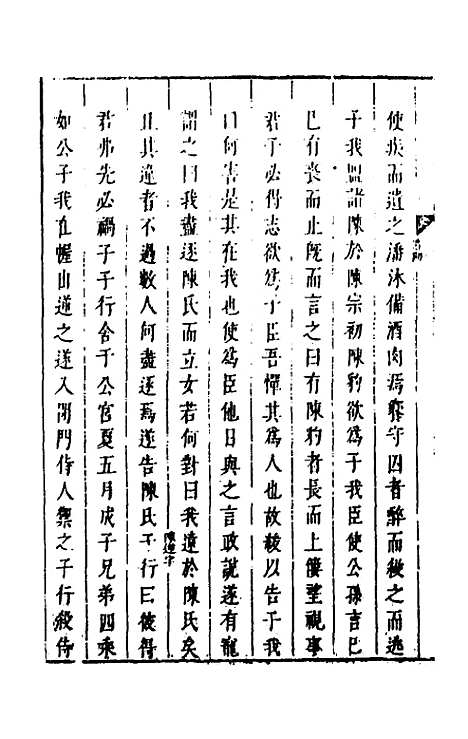 使疾而遺之潘沐備酒肉焉饗守囚者醉而殺之而逃
子我盟諸陳於陳宗初陳豹欲爲子我臣使公孫言已
已有喪而止既而言之曰有陳豹者長而上僂望視事
君子必得志欲爲子臣吾憚其爲人也故緩以告子我
曰何害是其在我也使爲臣他日與之言政說遂有寵
謂之曰我盡逐陳氏而立女若何對曰我遠於陳氏矣
且其違者不過數人何盡逐焉遂告陳氏子行曰彼得
陳逆字
君弗先必禍子子行舍于公宮夏五月成子兄弟四乘
如公子我在幄出逆之遂入閉門侍人禦之子行殺侍